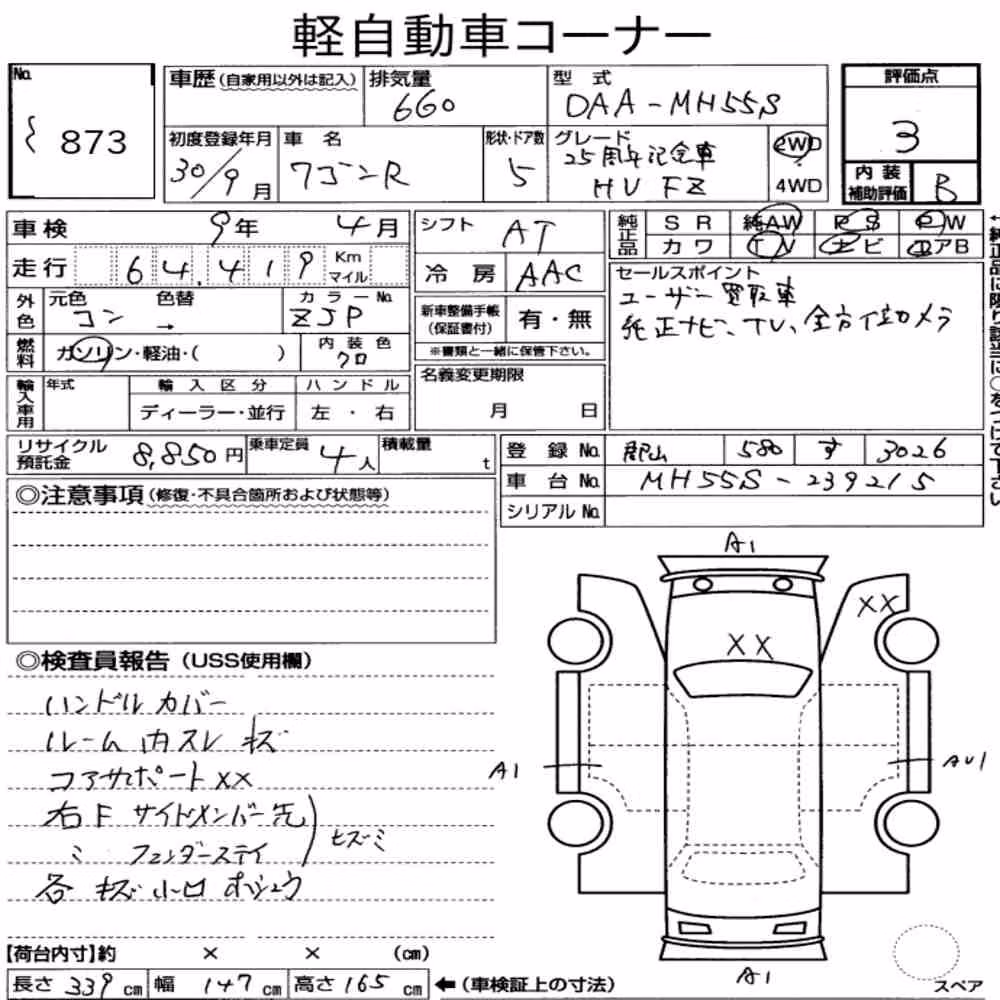 軽自動車コーナー
No. 873
車歴(自家用以外は記入)
排気量 660
型式 DAA-MH55S
評価点 3
初度登録年月 30/9月
車名 ワゴンR
形状・ドア数 5
グレード 25周年記念車 HV FZ
2WD
4WD
内装補助評価 B
車検 9年 4月
シフト AT
純正品 SR 純AW PS PW
カワ TV ナビ エアB
走行 64,419 Km マイル
冷房 AAC
セールスポイント
ユーザー買取車
純正ナビ、TV、全方位カメラ
外色 元色 コン 色替 → カラーNo. ZJP
新車整備手帳(保証書付) 有・無
※書類と一緒に保管下さい。
燃料 ガソリン・軽油・( ) 内装色 クロ
名義変更期限 月 日
輸入車用 年式 輸入区分 ハンドル
ディーラー・並行 左・右
リサイクル預託金 8,850円
乗車定員 4人
積載量 t
登録No. 郡山 580 す 3026
車台No. MH55S-239215
シリアルNo.
◎注意事項(修復・不具合箇所および状態等)
A1
XX
XX
◎検査員報告(USS使用欄)
ハンドルカバー
ルーム内スレ キズ
コアサポートXX
A1
AU1
右F サイドメンバー先
ミ フェンダーステイ
ヒズミ
各 キズ 小凹 ホシュウ
【荷台内寸】約 × × (cm)
長さ 339 cm 幅 147 cm 高さ 165 cm ←(車検証上の寸法)
A1
スペア